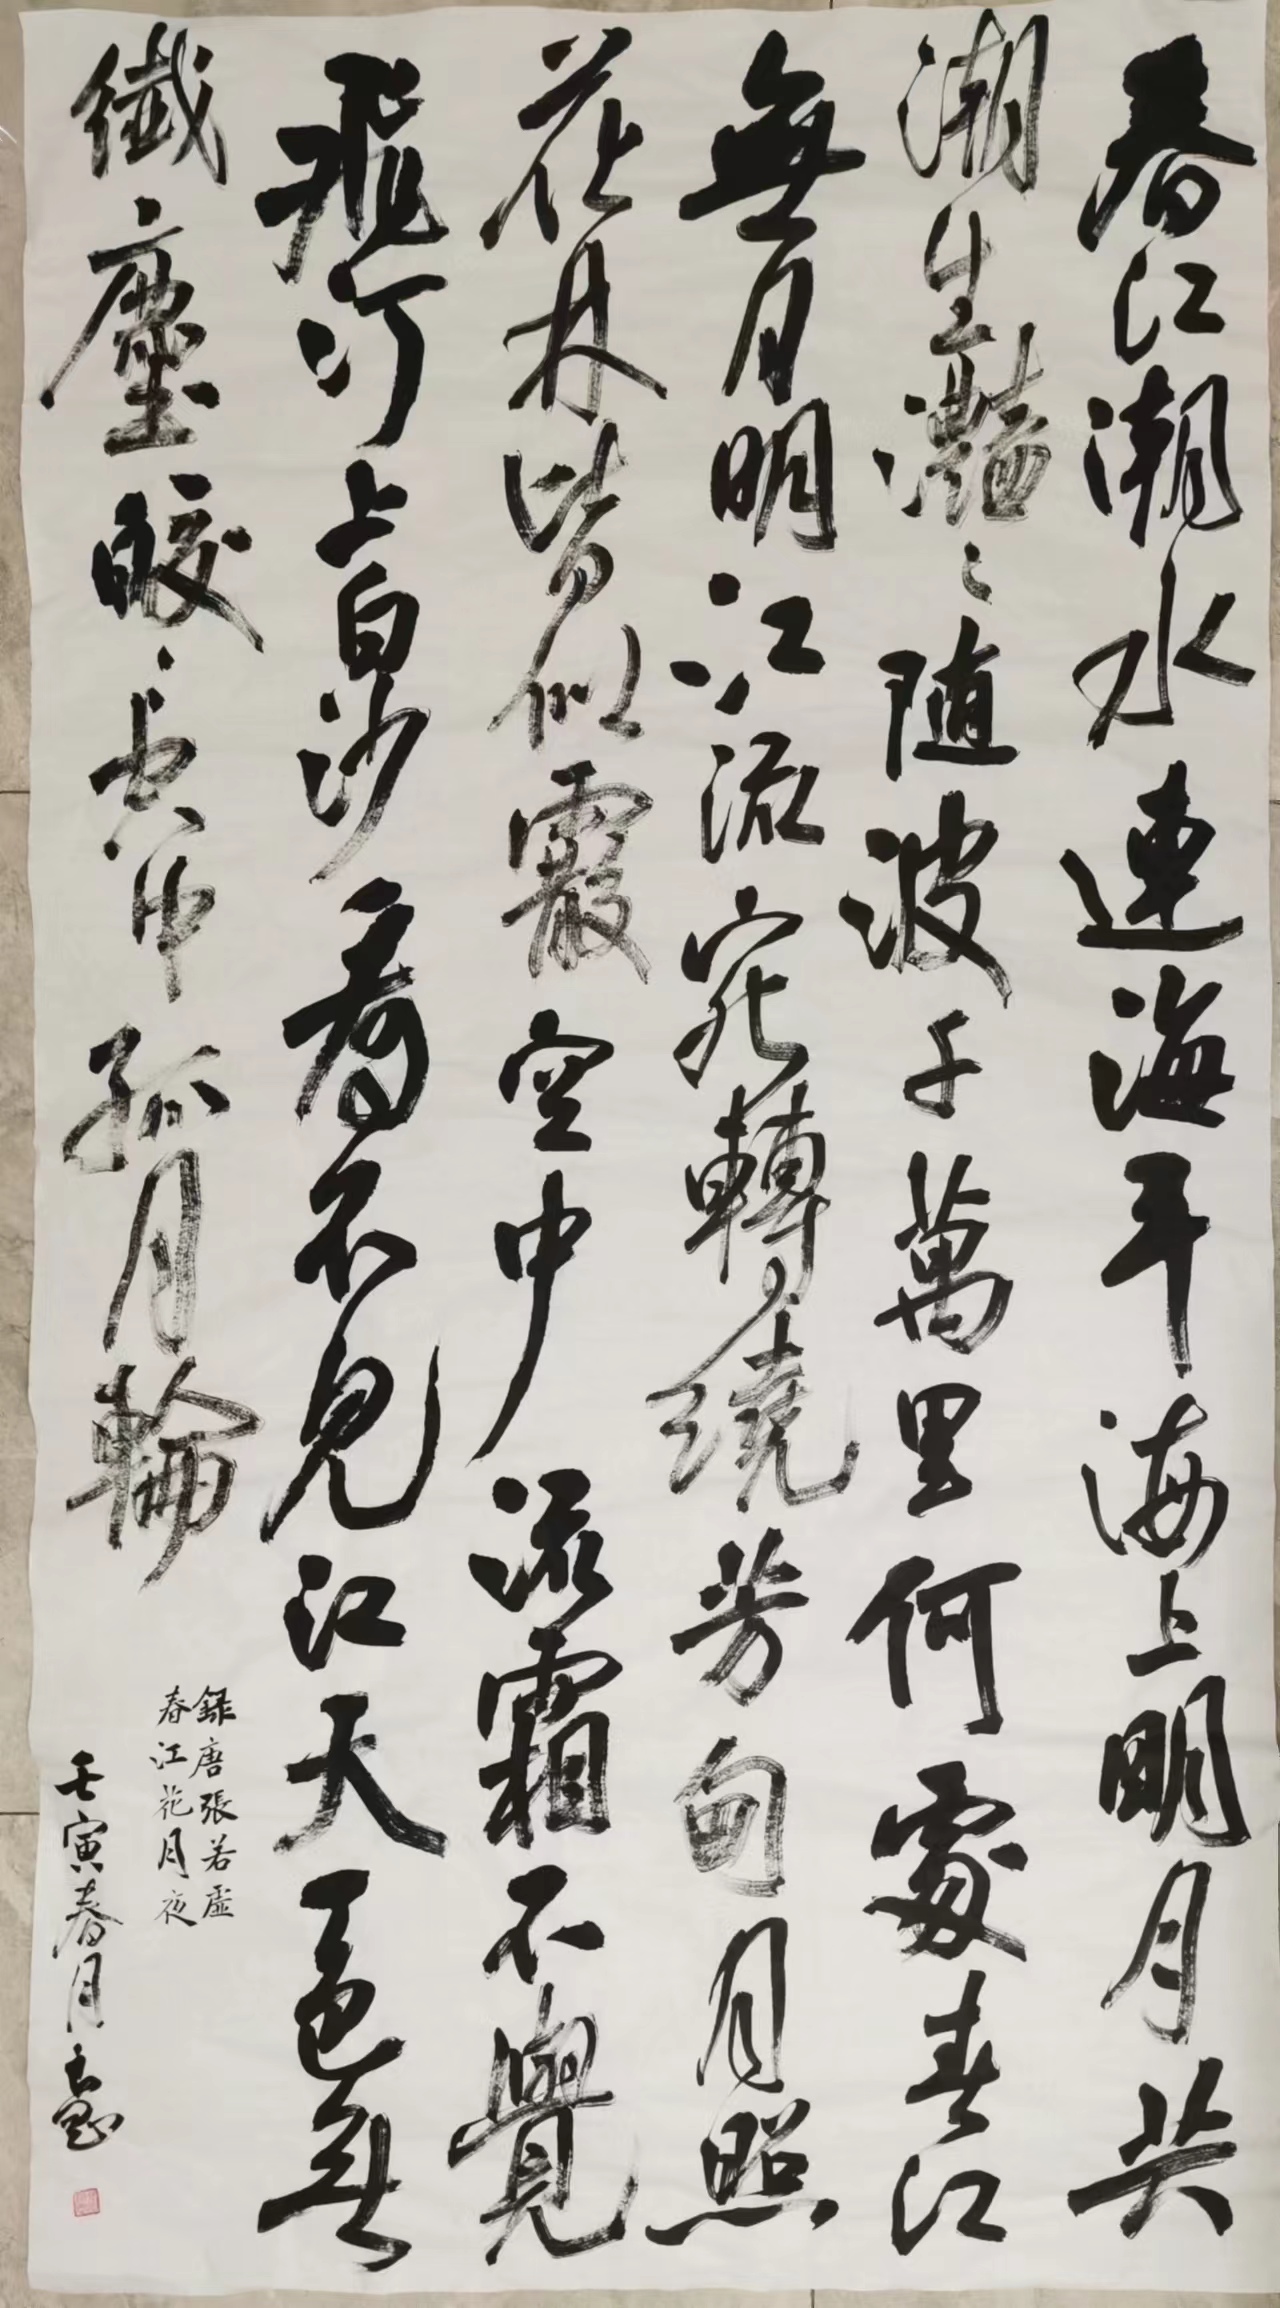 春江潮水連海平海上明月共
潮生灩〻随波千萬里何處春江
無月明江流宛轉繞芳甸月照
花林皆似霰空中流霜不覺
飛汀上白沙看不見江天一色無
纖塵皎〻空中孤月輪
録唐張若虛
春江花月夜
壬寅春月